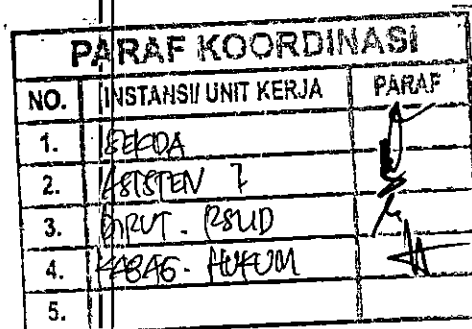 PARAF KOORDINASI
NO. INSTANSI/ UNIT KERJA PARAF
1. SEKDA
2. ASISTEN 1
3. DIRUT - RSUD
4. KABAG - HUKUM
5.